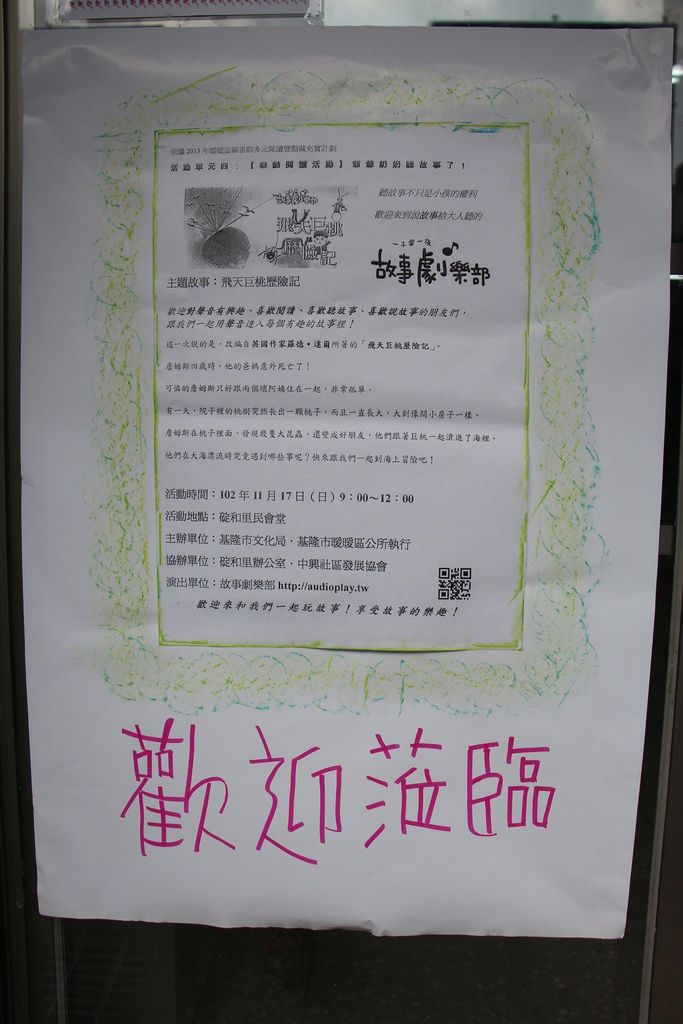 依據 2013 年暖暖區圖書館多元閱讀暨館藏充實計劃
活動單元四：【樂齡閱讀活動】爺爺奶奶聽故事了！
聽故事不只是小孩的權利
歡迎來到說故事給大人聽的
飛天巨桃
歷險記
一千零一夜
故事劇樂部
主題故事：飛天巨桃歷險記
歡迎對聲音有興趣、喜歡閱讀、喜歡聽故事、喜歡說故事的朋友們，
跟我們一起用聲音進入每個有趣的故事裡！
這一次說的是，改編自英國作家羅德•達爾所著的「飛天巨桃歷險記」。
詹姆斯四歲時，他的爸媽意外死亡了！
可憐的詹姆斯只好跟兩個壞阿姨住在一起，非常孤單。
有一天，院子裡的桃樹突然長出一顆桃子，而且一直長大，大到像間小房子一樣。
詹姆斯在桃子裡面，發現幾隻大昆蟲，還變成好朋友，他們跟著巨桃一起滾進了海裡。
他們在大海漂流時究竟遇到哪些事呢？快來跟我們一起到海上冒險吧！
活動時間：102 年 11 月 17 日（日）9：00～12：00
活動地點：碇和里民會堂
主辦單位：基隆市文化局．基隆市暖暖區公所執行
協辦單位：碇和里辦公室．中興社區發展協會
演出單位：故事劇樂部 http://audioplay.tw
歡迎來和我們一起玩故事！享受故事的樂趣！
歡迎蒞臨